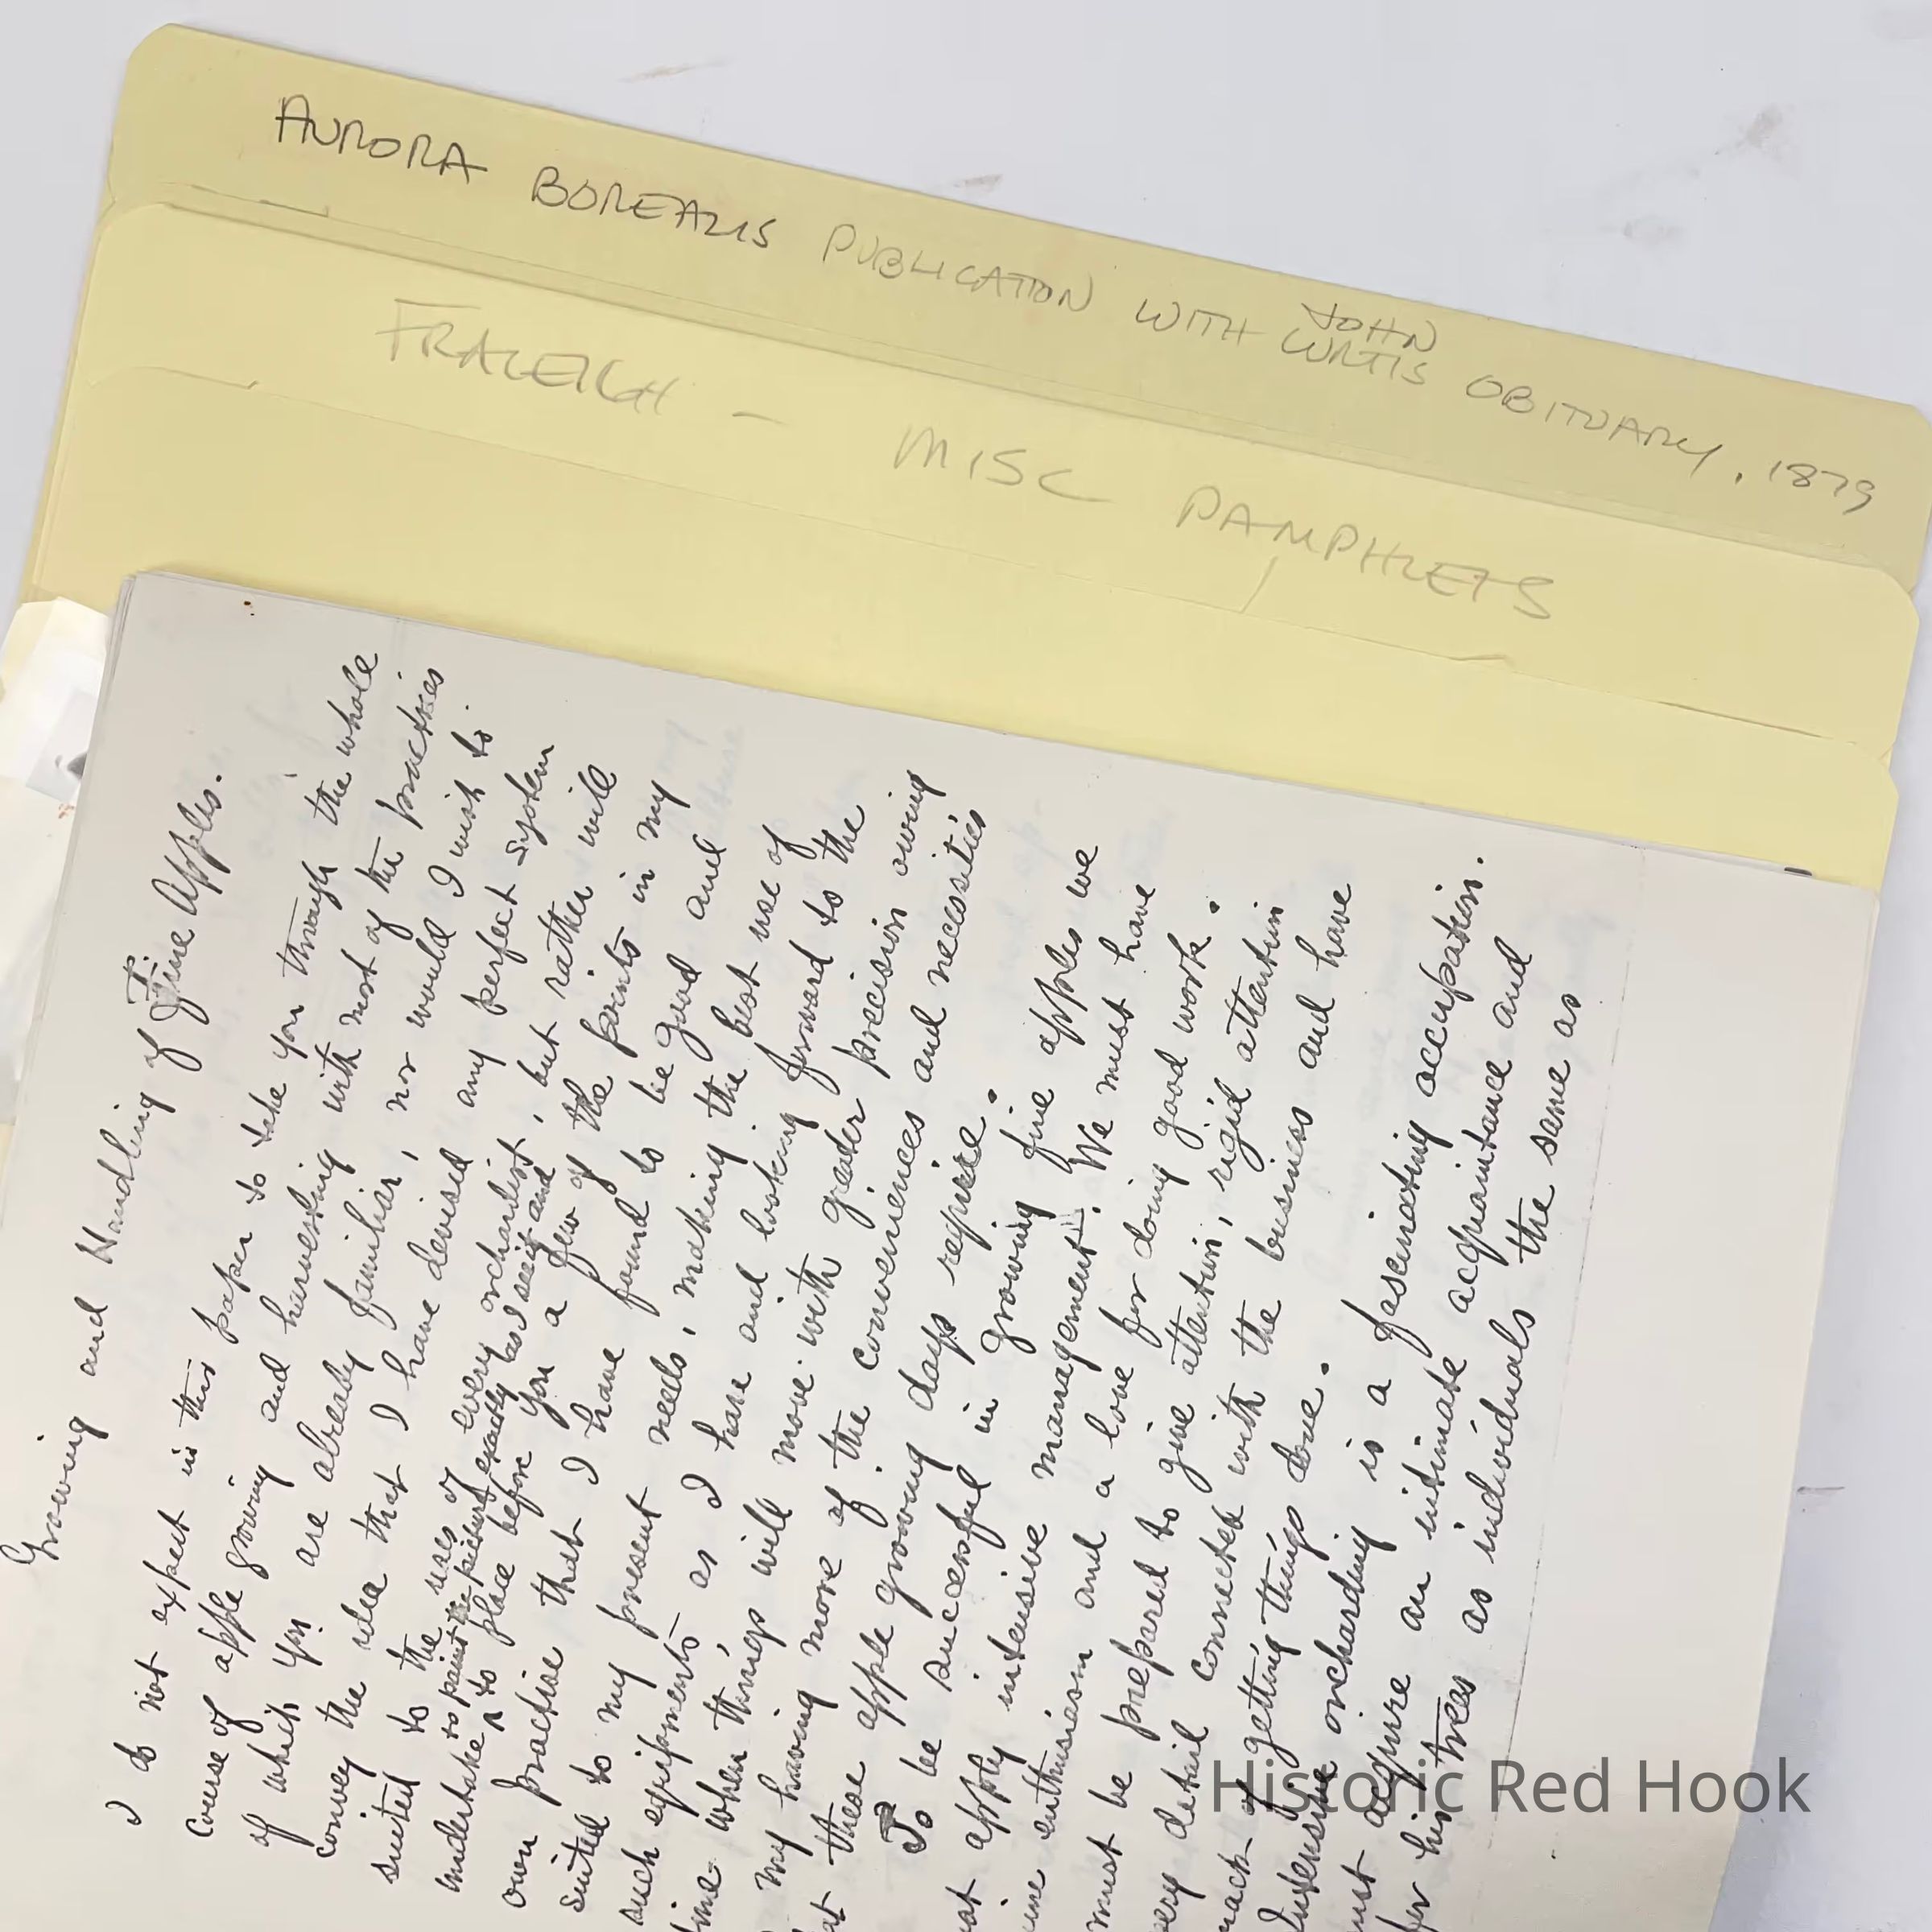 AURORA BOREALIS PUBLICATION WITH JOHN CURTIS OBITUARY, 1879
FRALEIGH - MISC PAMPHLETS
Growing and Handling of Fine Apples.
I do not expect in this paper to take you through the whole
course of apple growing and harvesting with most of the practises
of which you are already familiar, nor would I wish to
convey the idea that I have devised any perfect system
suited to the uses of every orchardist, but rather will
undertake to paint the picture exactly as I see it and
to place before you a few of the points in my
own practise that I have found to be good and
suited to my present needs, making the best use of
such equipments as I have and looking forward to the
time when things will move with greater precision owing
my having more of the conveniences and necessities
at these apple growing days require.
To be successful in growing fine apples we
apply intensive management. We must have
enthusiasm and a love for doing good work.
must be prepared to give attention, rigid attention
detail connected with the business and have
of getting things done.
Intensive orcharding is a fascinating occupation.
acquire an intimate acquaintance and
his trees as individuals the same as
Historic Red Hook